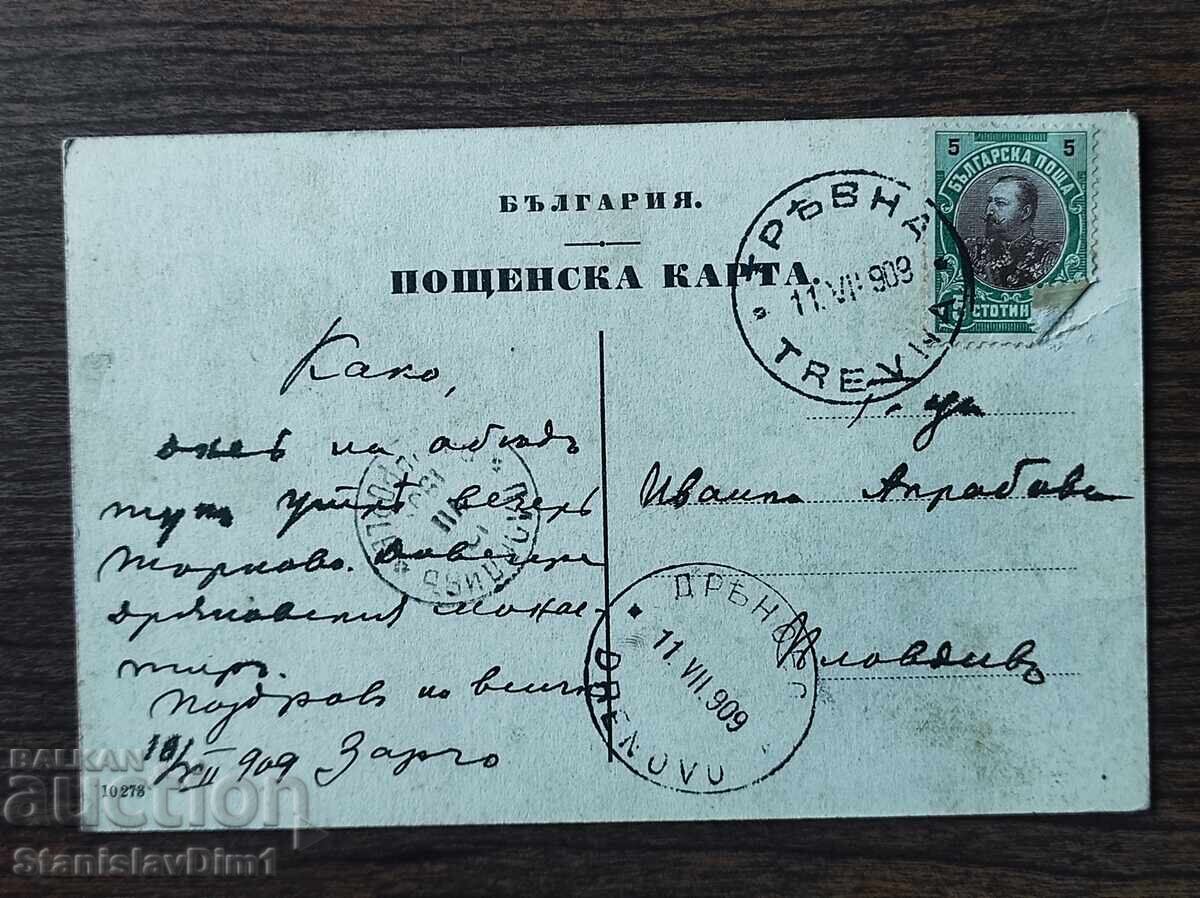 БЪЛГАРИЯ.
ПОЩЕНСКА КАРТА.
5 5
БЪЛГАРСКА ПОЩА
5 СТОТИН
ТРѢВНА
11.VII.909
TREVNA
Како,
днесъ на обѣдъ
тук утрѣ вечерь
Торново. Довечера
дряновския монас-
тир.
Поздрав на всички
10/VII 909 Зарчо
Иванка
Пловдивъ
ДРѢНОВО
11.VII.909
DRENOVO
ПЛОВДИВЪ
10273
BALKAN
auction
StanislavDim1